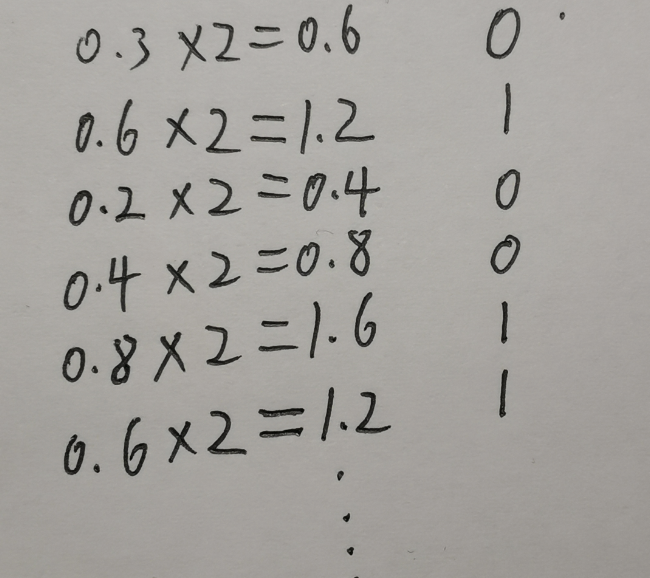 0.3 ×2=0.6 0
0.6 ×2=1.2 1
0.2 ×2=0.4 0
0.4 ×2=0.8 0
0.8×2=1.6 1
0.6×2=1.2 1
.
.
.